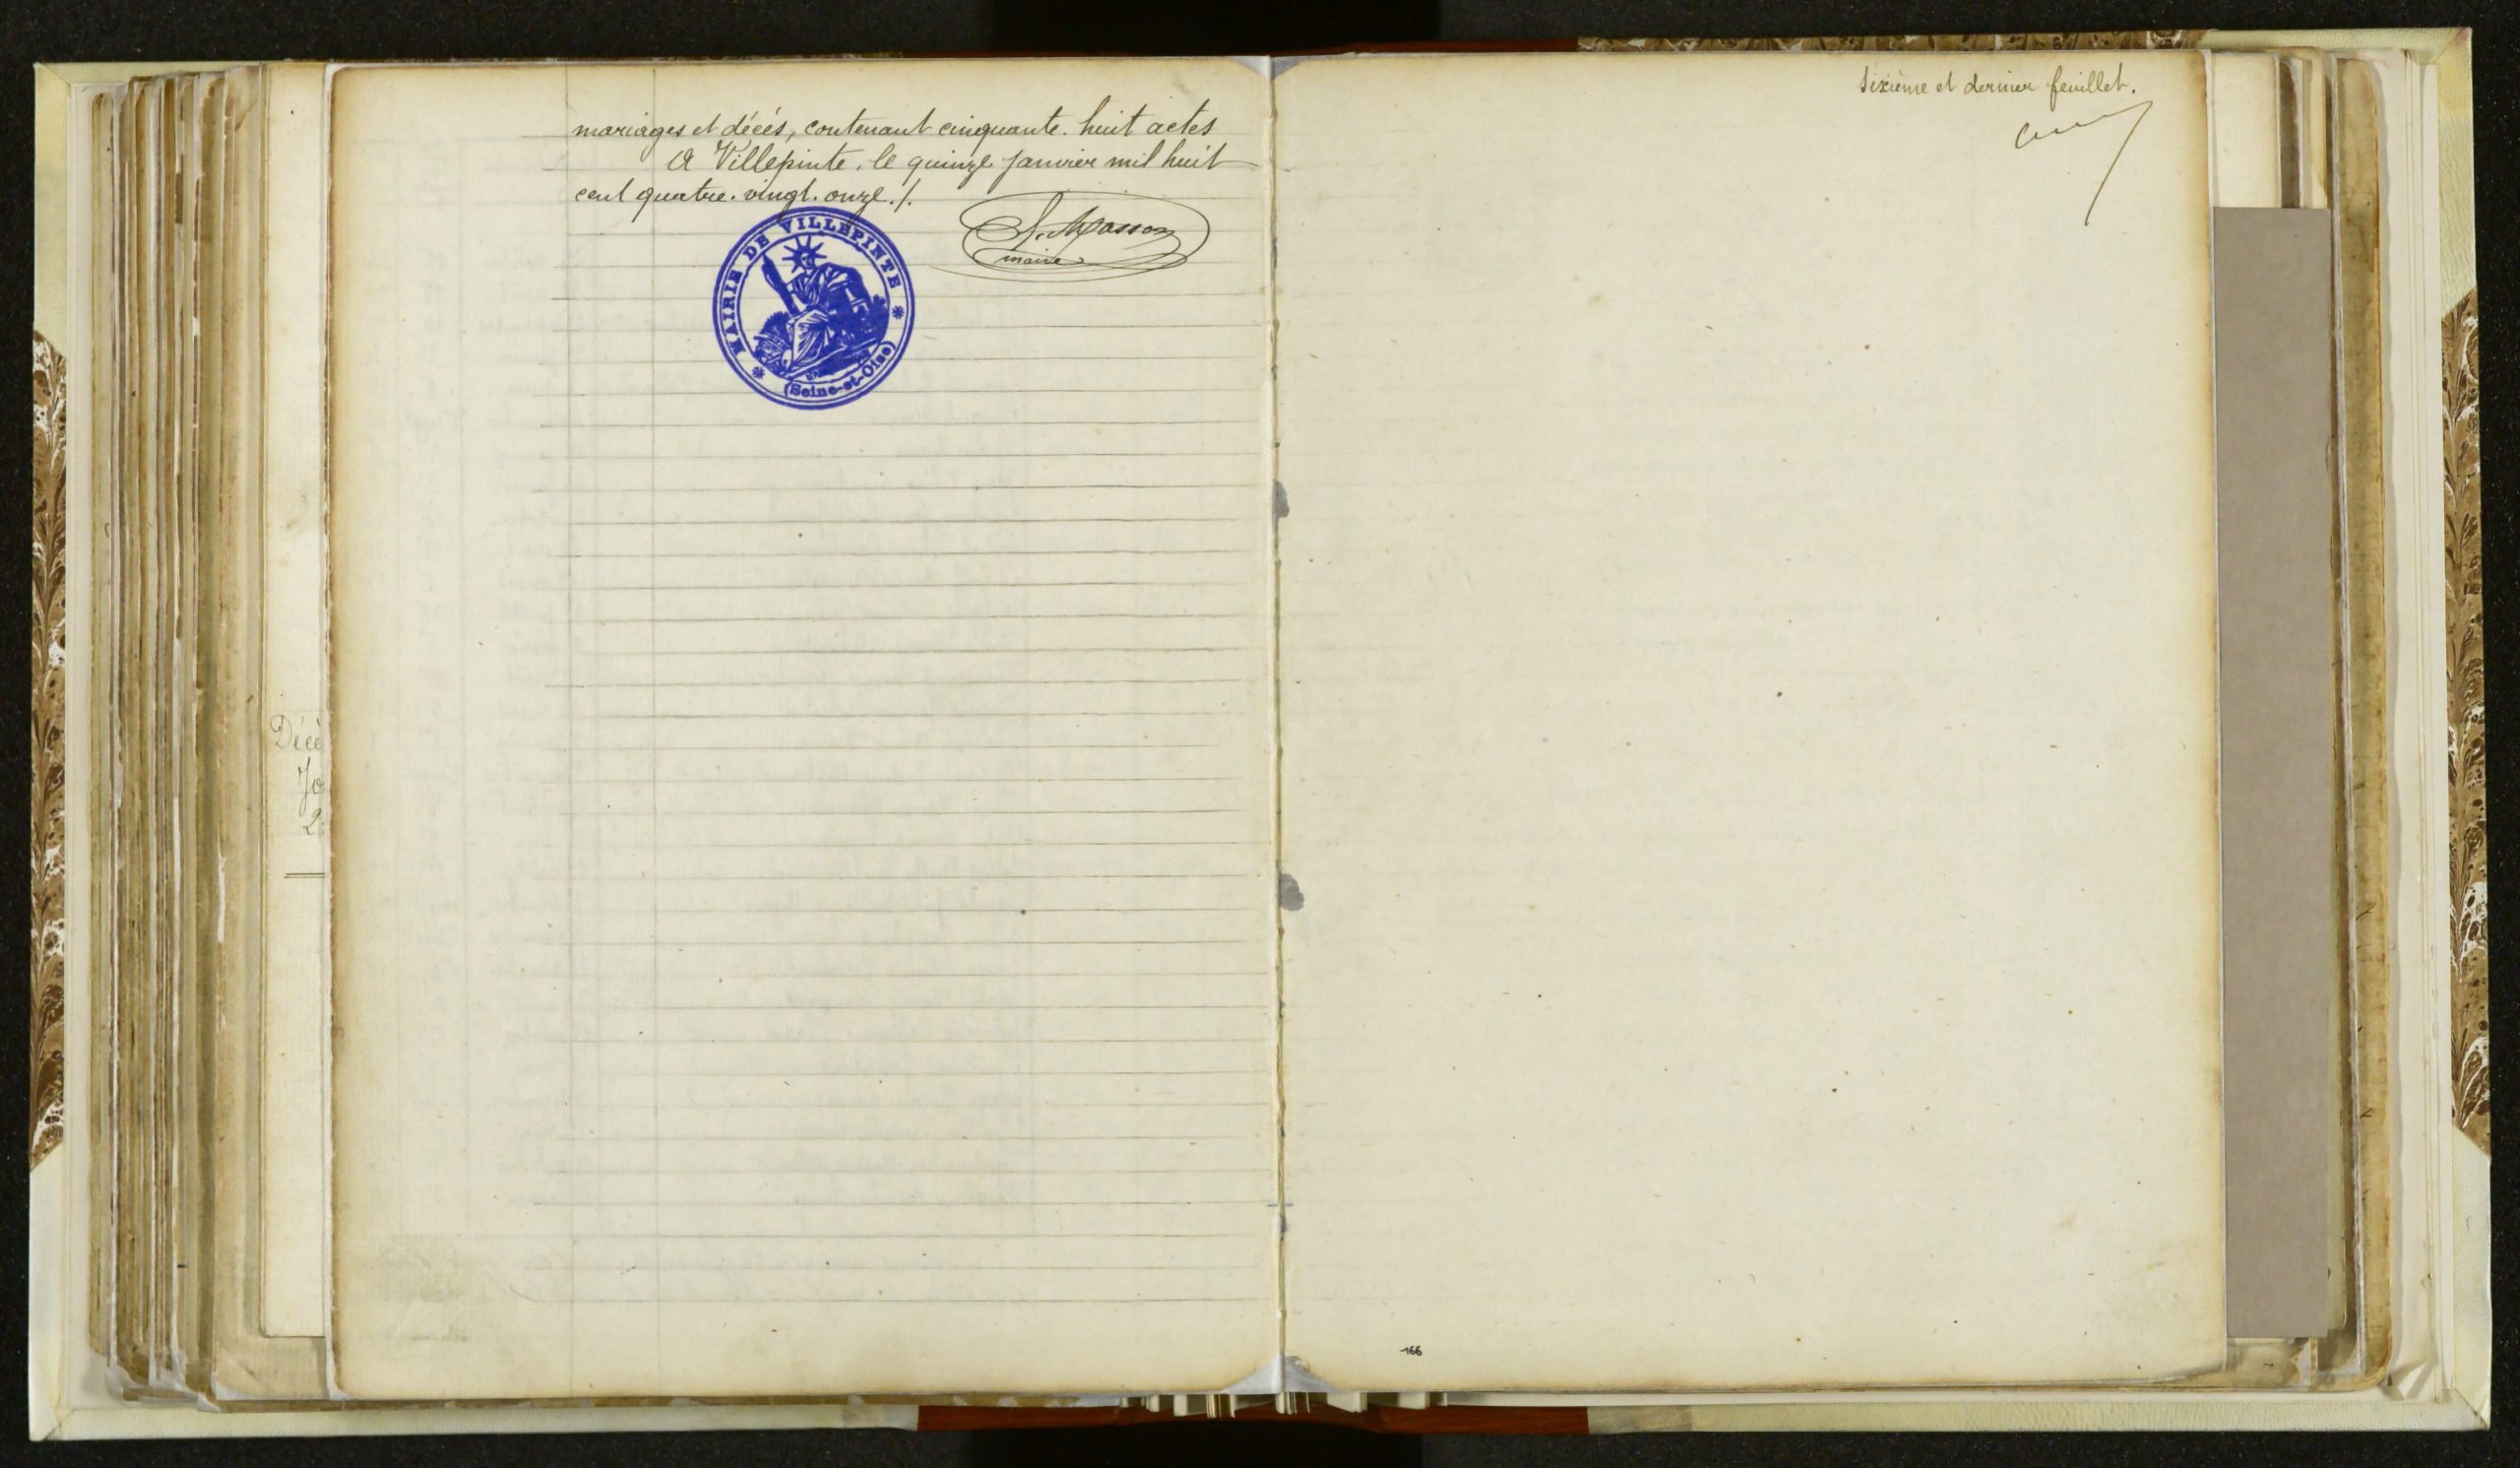 mariages et décès, contenant cinquante. huit actes
A Villepinte, le quinze janvier mil huit
cent quatre. vingt. onze./.
Masson
maire
MAIRIE DE VILLEPINTE
(Seine-et-Oise)
Décè
Jo
2
Sixième et dernier feuillet.
166